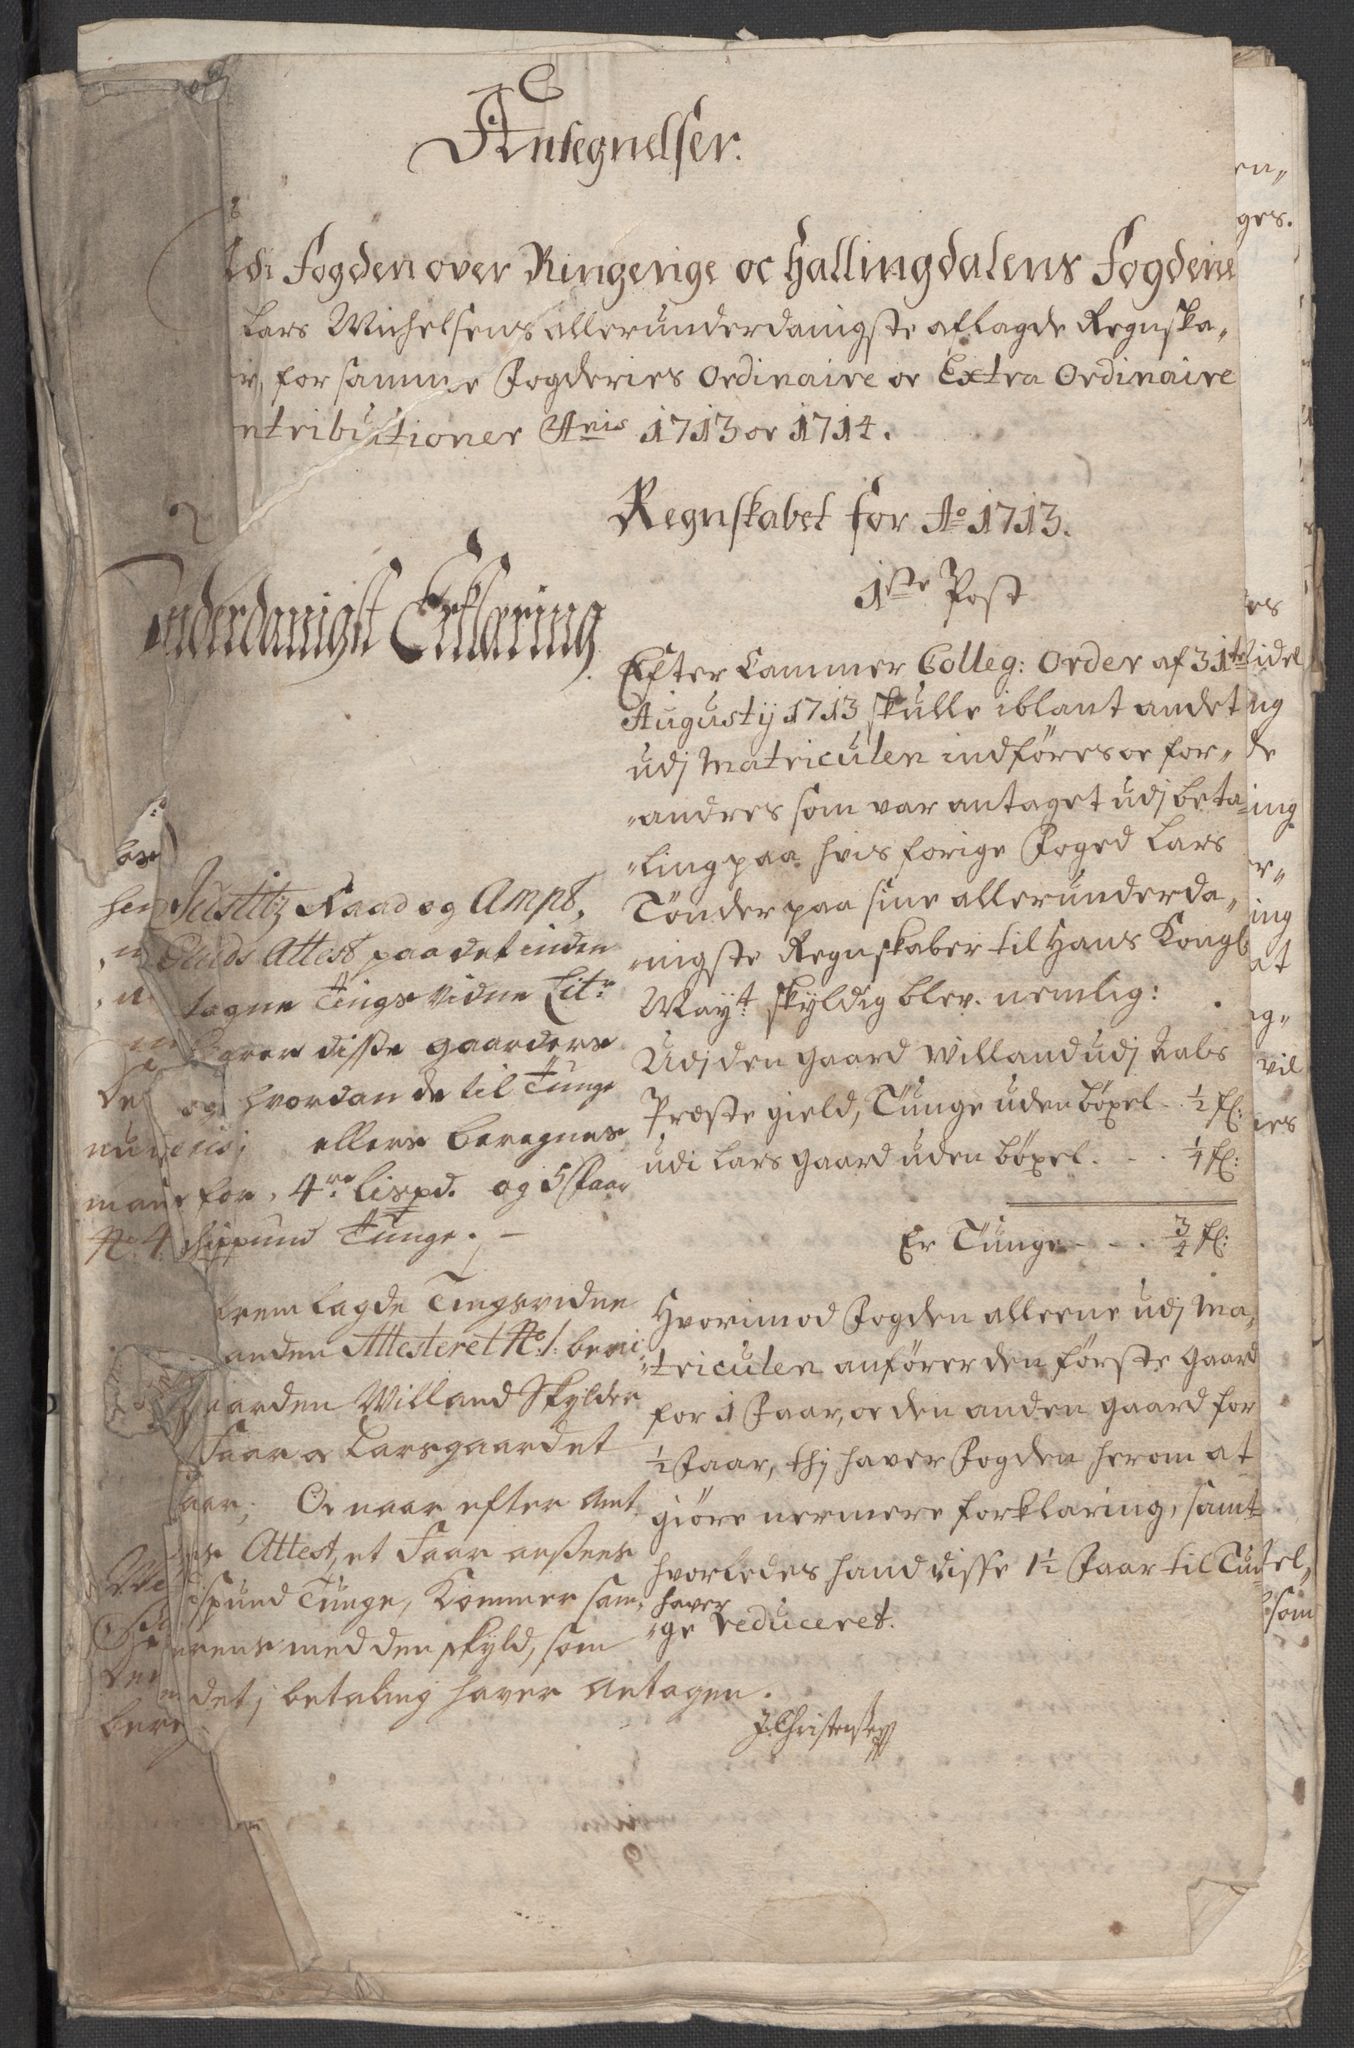 Antegnelser.
Udi Fogden over Ringerige oc Hallingdalens Fogderie
Lars Michelsens allerunderdanigste aflagde Regnska„
for samme Fogderies Ordinaire oc Extra Ordinaire
ntributioner Anis 1713 oc 1714.
Regnskabet for Ao 1713.
1ste Post
Efter Cammer Colleg: Order af 31te
Augustij 1713 skulle iblant andet
udj Matriculen indføres oc for„
„andres som var antaget udj beta„
„ling paa hvis forige Foged Lars
Tønder paa sine allerunderda„
„nigste Regnskaber til Hans Kongl
Mayt. skyldig blev. nemlig:
Udj den gaard Willand udj Aals
Præste gield, Tunge uden bøxel - ½ ℔:
udi Lars gaard uden bøxel. - - ¼ ℔:
Er Tunge - - - ¾ ℔:
Hvorimod Fogden alleene udj Ma„
„triculen anfører den første gaard
for 1 Faar, oc den anden gaard for
½ Faar, thj haver Fogden herom at
giøre nermere forklaring, samt
hvorledes hand disse 1½ Faar til Tun
haver
„ge reduceret.
Underdanigst Erklæring
Justitz Raad og Ampt,
Attest paa det inden
tagne Tings Vidne Litr
disse gaarders
og hvordan de til Tunge
ellers beregnes
for 4re Lispd. og 5 Faar
No. 4 skippund Tunge. -
frem lagde Tingsvidne
anden Attesteret No. 1: bevi
gaarden Willand Skylder
Faar oc Larsgaardet
aar, Oc naar efter Amt
Attest, et Faar ansees
ispund Tunge, Kommer sam,
erens med den skyld, som
det j betaling haver Antagen.
J. Christensen